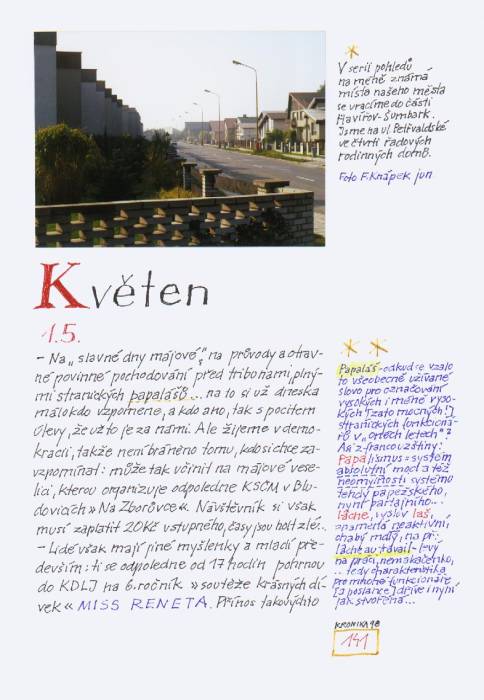 V serii pohledů
na méně známá
místa našeho města
se vracíme do části
Havířov-Šumbark.
Jsme na ul. Petřvaldské
ve čtvrti řadových
rodinných domů.
Foto F. Knápek jun
Květen
1.5.
- Na „slavné dny májové", na průvody a otrav-
né povinné pochodování před tribónami, plný-
mi stranických papalášů... na to si už dneska
málokdo vzpomene, a kdo ano, tak s pocitem
úlevy, že už to je za námi. Ale žijeme v demo-
kracii, takže není bráněno tomu, kdo si chce za-
vzpomínat: může tak učinit na májové vese-
lici, kterou organizuje odpoledne KSČM v Blu-
dovicích » Na Zborůvce«. Návštěvník si však
musí zaplatit 20Kč vstupného, časy jsou holt zlé...
- Lidé však mají jiné myšlenky a mladí pře-
devším: ti se odpoledne od 17 hodin pohrnou
do KDLJ na 6. ročník » soutěže krásných dí-
vek « MISS RENETA. Přínos takovýchto
Papaláš - odkud se vzalo
to všeobecně užívané
slovo pro označování
vysokých i méně vyso-
kých [zato mocných!]
stranických funkcioná-
řů v „ortech letech"?
Asi z francouzštiny:
Papalismus = systém
absolutní moci a též
neomylnosti systému
tehdy papežského,
nyní partajního...
lâche, vyslov laš,
znamená neaktivní,
chabý, mdlý, na př.:
lâche au travail - lévý
na práci, nemakačenko,
... tedy charakteristika
pro mnohé funkcionáře
[a poslance] dříve i nyní
jak stvořená...
KRONIKA 98
141